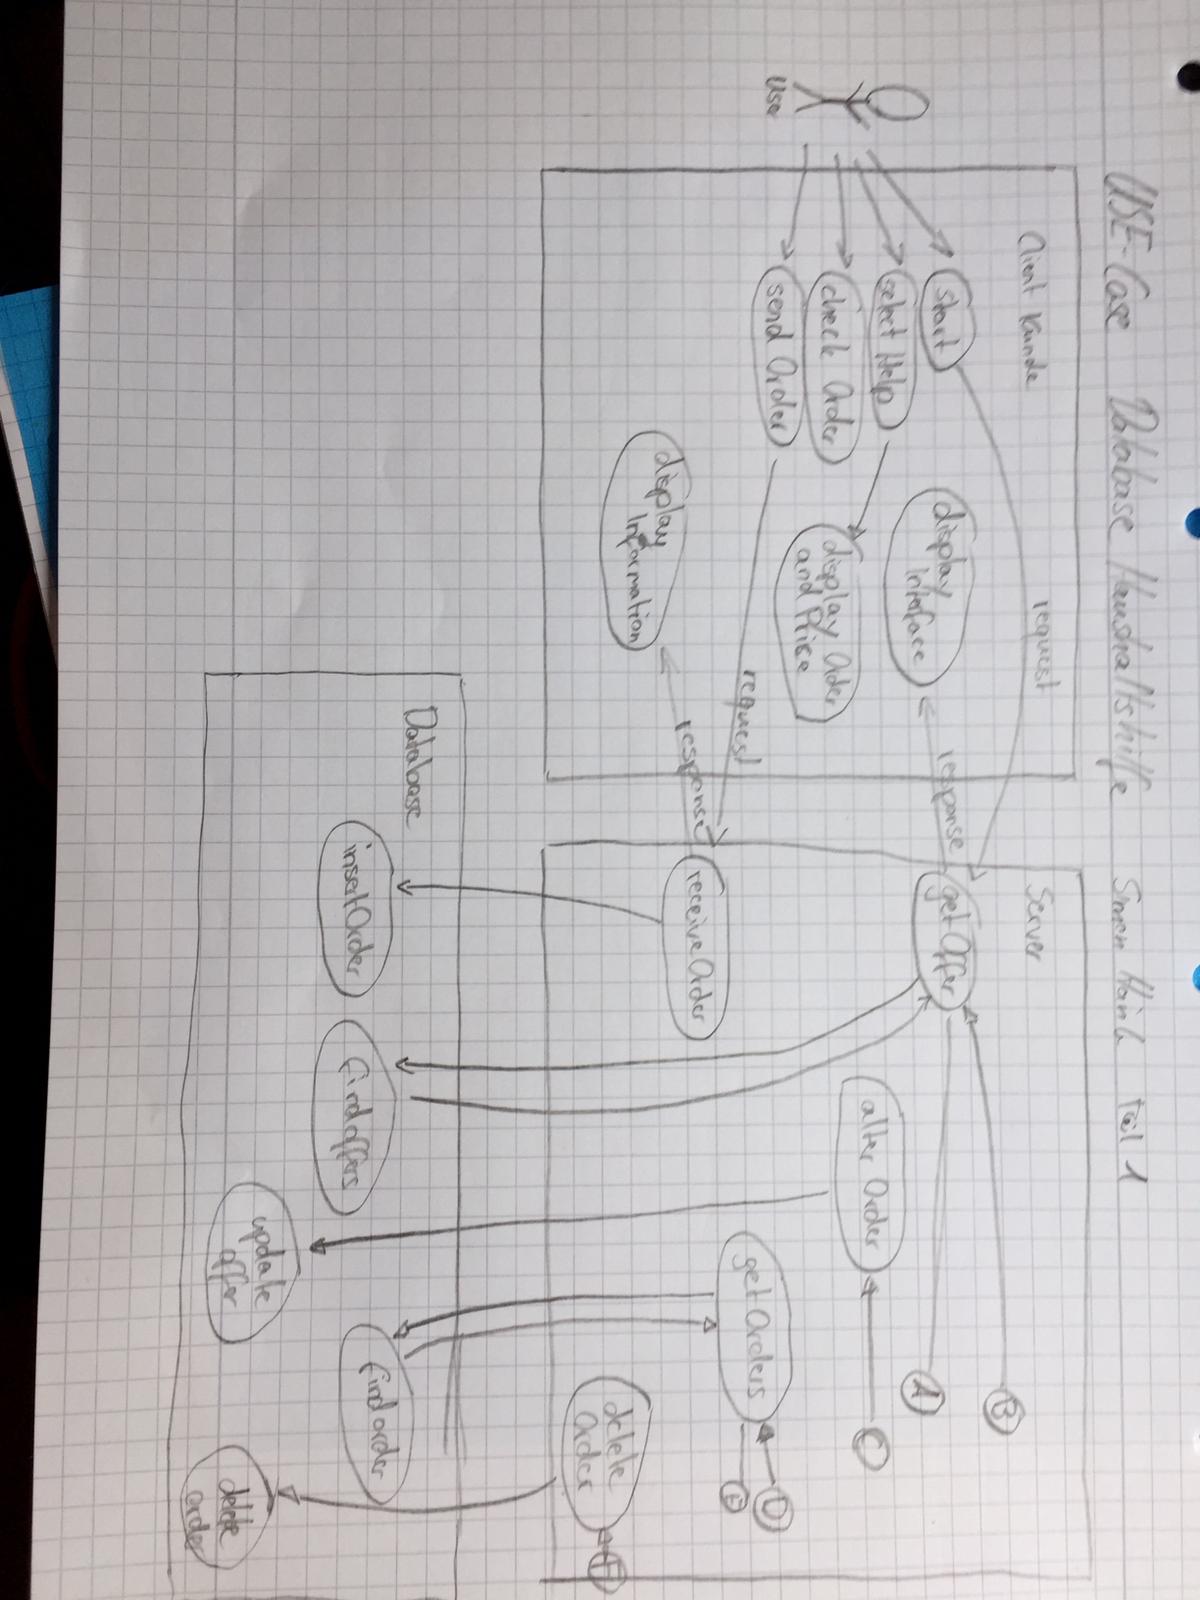 USE-Case Database Haushaltshilfe Teil 1
Client Kunde
User
start
select Help
check Order
send Order
display
Interface
display Order
and Price
display
Information
request
response
request
response
Server
getOffer
receiveOrder
alter Order
getOrders
delete
Order
B
A
C
D
E
F
Database
insertOrder
findoffers
update
offer
findorder
delete
order